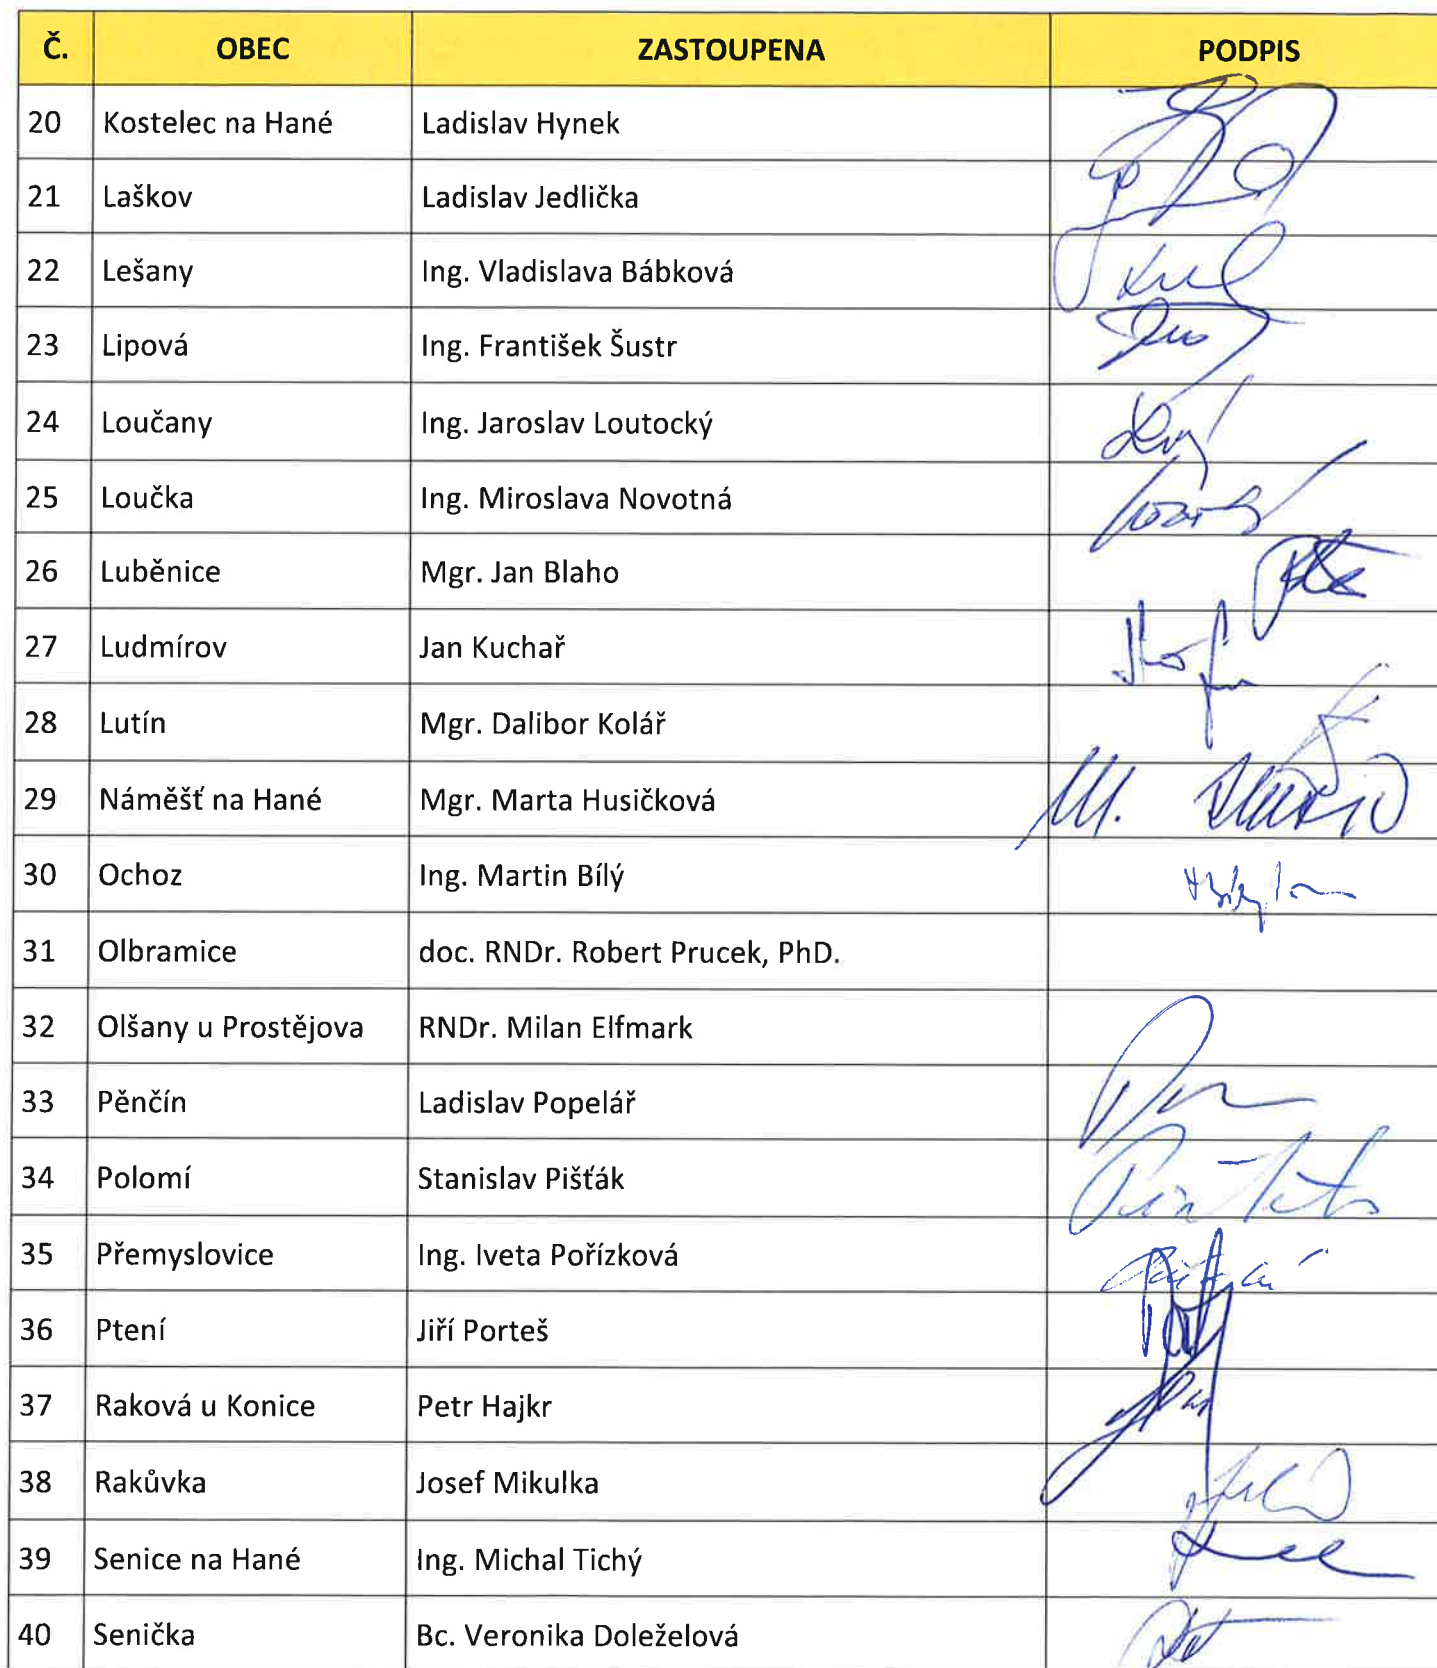 Č. OBEC ZASTOUPENA PODPIS
20 Kostelec na Hané Ladislav Hynek
21 Laškov Ladislav Jedlička
22 Lešany Ing. Vladislava Bábková
23 Lipová Ing. František Šustr
24 Loučany Ing. Jaroslav Loutocký
25 Loučka Ing. Miroslava Novotná
26 Luběnice Mgr. Jan Blaho
27 Ludmírov Jan Kuchař
28 Lutín Mgr. Dalibor Kolář
29 Náměšť na Hané Mgr. Marta Husičková
30 Ochoz Ing. Martin Bílý
31 Olbramice doc. RNDr. Robert Prucek, PhD.
32 Olšany u Prostějova RNDr. Milan Elfmark
33 Pěnčín Ladislav Popelář
34 Polomí Stanislav Pišťák
35 Přemyslovice Ing. Iveta Pořízková
36 Ptení Jiří Porteš
37 Raková u Konice Petr Hajkr
38 Rakůvka Josef Mikulka
39 Senice na Hané Ing. Michal Tichý
40 Senička Bc. Veronika Doleželová